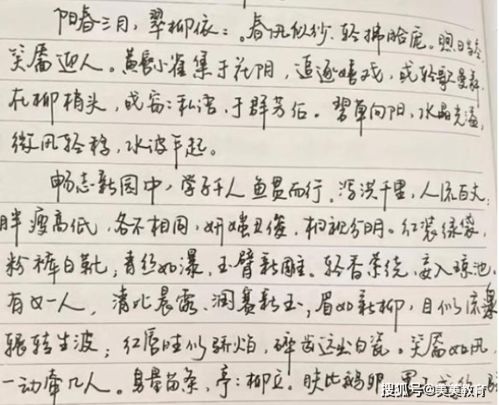 阳春三月，翠柳依：。春风似纱，轻拂脸庞。
笑靥迎人。黄鹂小雀集于花阴，追逐嬉戏，或轻歌曼舞
在柳梢头，或窃：私语，于群芳后。碧草向阳，水晶光溢，
微风轻移，水波平起。
畅志新园中，学子千人鱼贯而行，浮洪千里，人流百丈，
胖瘦高低，各不相同，妍媸丑俊，相视分明。红装绿裳，
粉裤白靴；青丝如瀑，玉臂新雕。轻香萦绕，
有女一人，清比晨露，润赛新玉，眉如新柳，目似流
辗转生波；红唇娇似骄焰，碎齿远出白瓷。笑靥如风，
一动牵几人。身量苗条，亭：柳立。肤比鹅卵，
搜狐号@美美教育